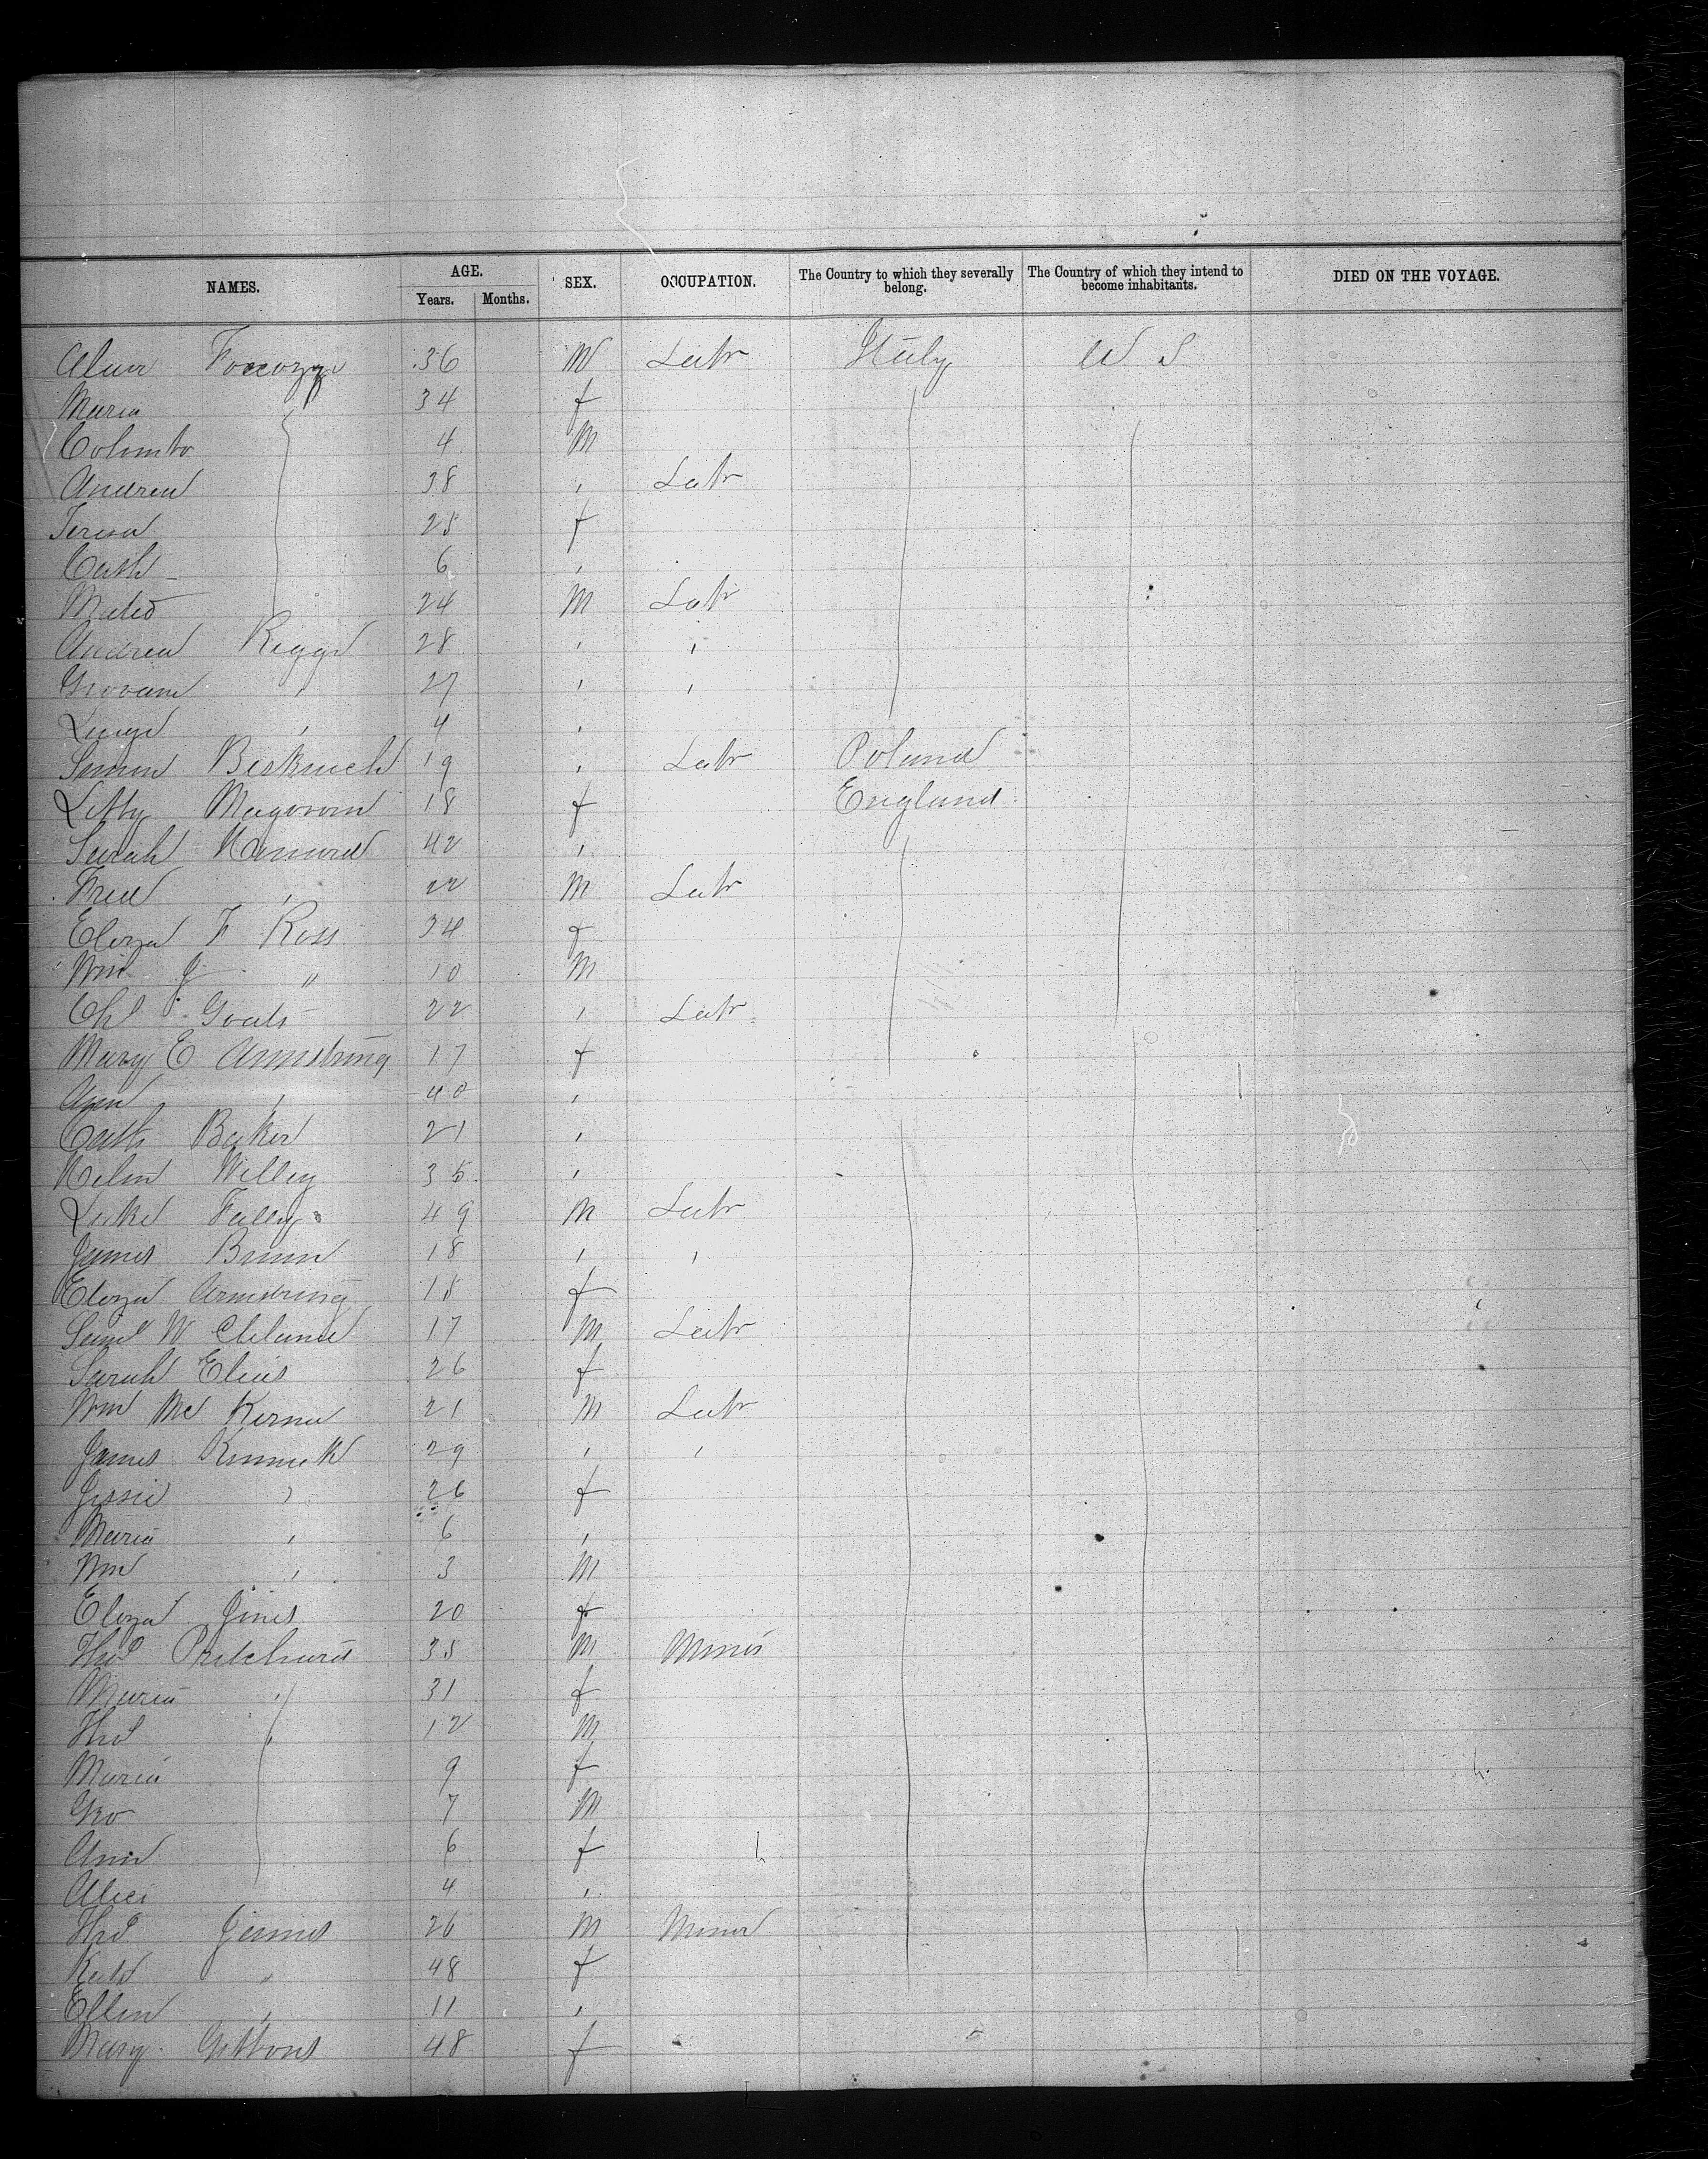 NAMES. AGE. Years. Months. SEX. OCCUPATION. The Country to which they severally belong. The Country of which they intend to become inhabitants. DIED ON THE VOYAGE.
36 M Labr Italy U S
Maria 34 f
Colimbo 4 M
Andrea 38 " Labr
Teresa 25 f
Cath 6 "
Mateo 24 M Labr
Andrea Reggi 28 " "
Giovani " 27 " "
Luigi " 4 "
Simon 19 " Labr Poland
Letty Magovern 18 f England
Sarah 42 "
Fred " 22 M Labr
Eliza F Ross 34 f
Wm J " 10 M
Chs Goats 22 " Labr
Mary E Armstrong 17 f
Ann " 40 "
Cath Baker 21 "
Helen Willey 35 "
Luke Falley 49 M Labr
James Brown 18 " "
Eliza Armstrong 18 f
Saml W Cleland 17 M Labr
Sarah Elias 26 f
Wm Mc 21 M Labr
James 29 " "
Jessie " 26 f
Maria " 6 "
Wm " 3 M
Eliza Jones 20 f
Thos Pritchard 38 M Miner
Maria " 31 f
Thos 12 M
Maria 9 f
Geo 7 M
Ann 6 f
Alice 4 "
Thos James 26 M Miner
Kate " 48 f
Ellen " 11 "
Mary Gibbons 48 f